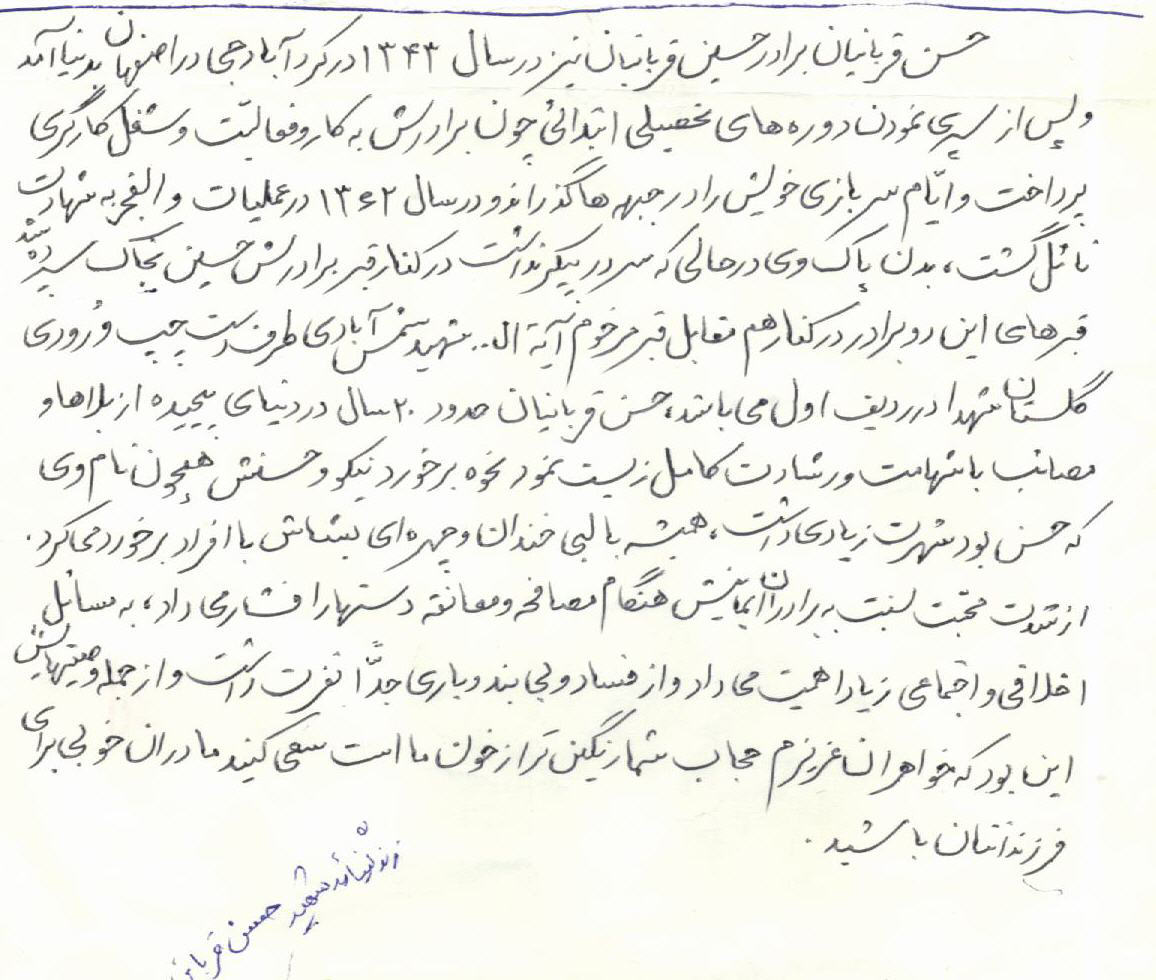 حسن قربانیان برادر حسین قربانیان نیز در سال ۱۳۴۳ در کردآباد جی در اصفهان بدنیا آمد
و پس از سپری نمودن دوره های تحصیلی ابتدائی چون برادرش به کار و فعالیت و شغل کارگری
پرداخت و ایّام سربازی خویش را در جبهه ها گذراند و در سال ۱۳۶۲ در عملیات والفجر به شهادت
نائل گشت، بدن پاک وی در حالی که سر در پیکر نداشت در کنار قبر برادرش حسین بخاک سپرده شد
قبرهای این دو برادر در کنار هم مقابل قبر مرحوم آیة ال.. شهید شمس آبادی طرف دست چپ ورودی
گلستان شهدا در ردیف اول می باشد، حسن قربانیان حدود ۲۰ سال در دنیای پیچیده از بلاها و
مصائب با شهامت و رشادت کامل زیست نمود نحوه برخورد نیکو و حسنش همچون نام وی
که حسن بود شهرت زیادی داشت، همیشه با لبی خندان و چهره ای بشاش با افراد برخورد می کرد.
از شدت محبت نسبت به برادران ایمانیش هنگام مصافحه و معانقه دستها را فشار می داد، به مسائل
اخلاقی و اجتماعی زیاد اهمیت می داد و از فساد و بی بند و باری جدّاً نفرت داشت و از جمله وصیتهایش
این بود که خواهران عزیزم حجاب شما رنگین تر از خون ما است سعی کنید مادران خوبی برای
فرزندانتان باشید.
شهید حسن